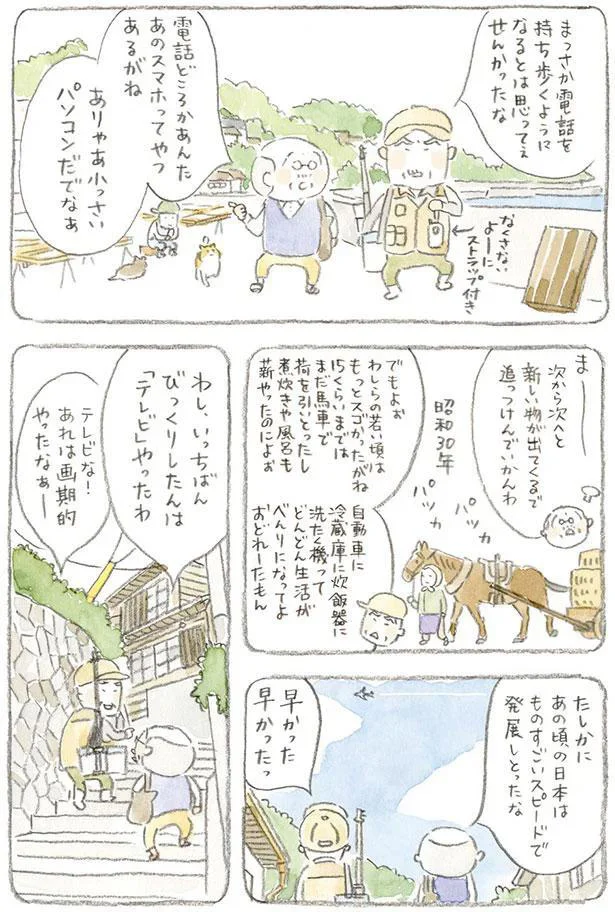 まっさか電話を
持ち歩くように
なるとは思ってぇ
せんかったな
なくさない
よーに
ストラップ付き
電話どころかあんた
あのスマホってやつ
あるがね
ありゃあ小っさい
パソコンだでなぁ
まー
次から次へと
新しい物が出てくるで
追っつけんでいかんわ
昭和30年
パッカ
パッカ
でもよぉ
わしらの若い頃は
もっとスゴかったがね
15くらいまでは
まだ馬車で
荷を引いとったし
煮炊きや風呂も
薪やったのによぉ
自動車に
冷蔵庫に炊飯器に
洗たく機って
どんどん生活が
べんりになってよ
おどれーたもん
わし、いっちばん
びっくりしたんは
「テレビ」やったわ
テレビな!
あれは画期的
やったなぁー
たしかに
あの頃の日本は
ものすごいスピードで
発展しとったな
早かった
早かったっ